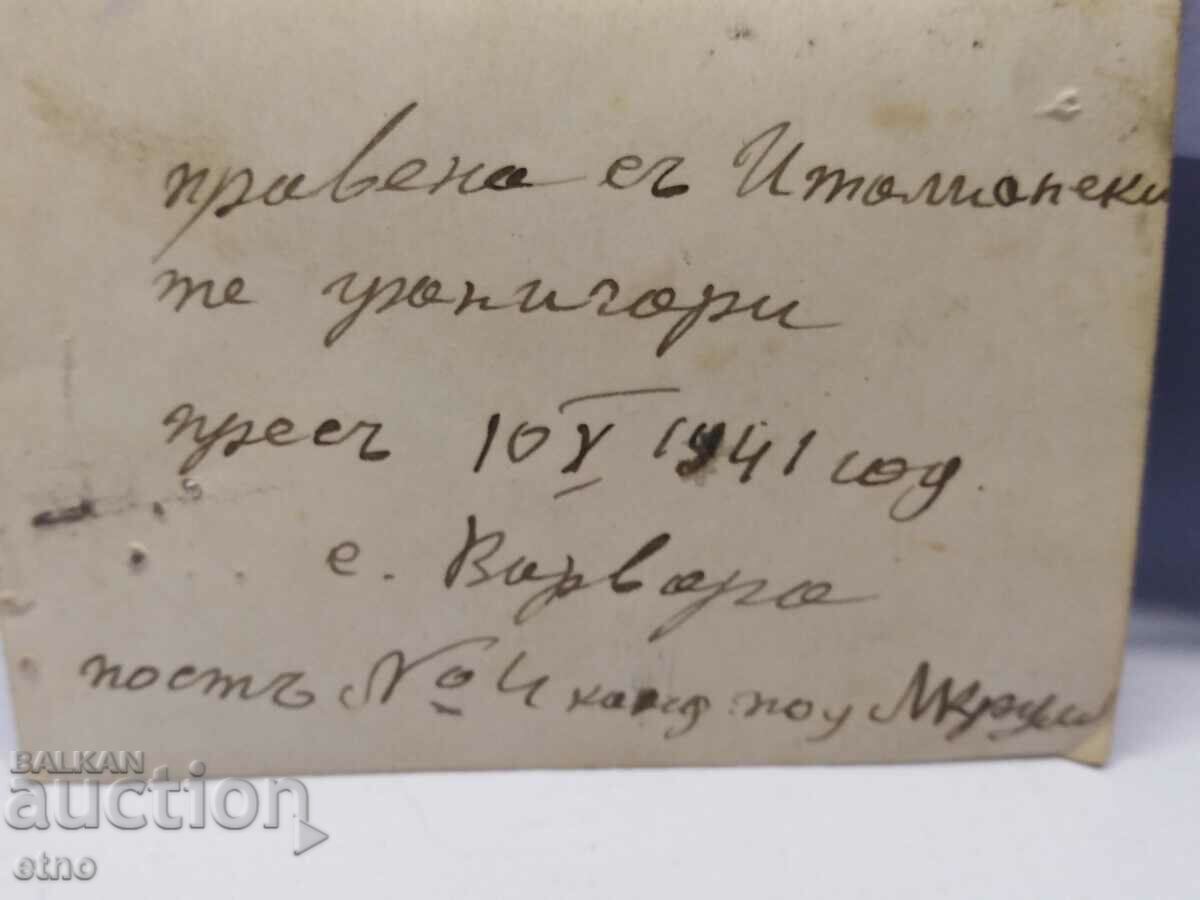 правена съ Италиански
те граничари
пресъ 10 V 1941 год.
с. Варвара
постъ № 4 канд. поу
BALKAN
auction
etno